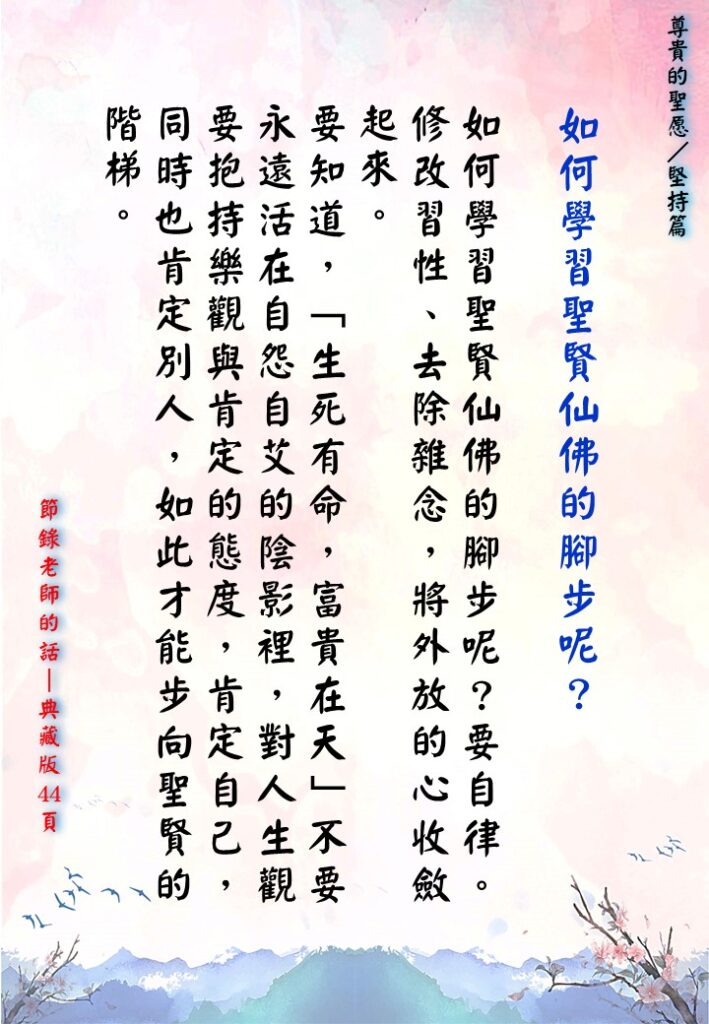 尊貴的聖愿／堅持篇
如何學習聖賢仙佛的腳步呢？
如何學習聖賢仙佛的腳步呢？要自律。
修改習性、去除雜念，將外放的心收斂
起來。
要知道，「生死有命，富貴在天」不要
永遠活在自怨自艾的陰影裡，對人生觀
要抱持樂觀與肯定的態度，肯定自己，
同時也肯定別人，如此才能步向聖賢的
階梯。
節錄老師的話—典藏版44頁